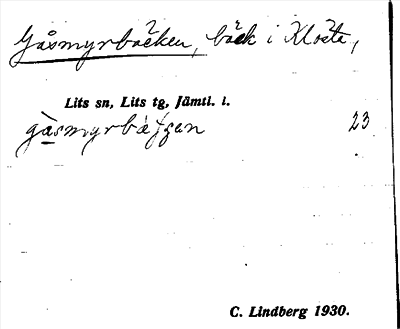 Gåsmyrbäcken, bäck i Klösta,
Lits sn, Lits tg, Jämtl. l.
23
C. Lindberg 1930.